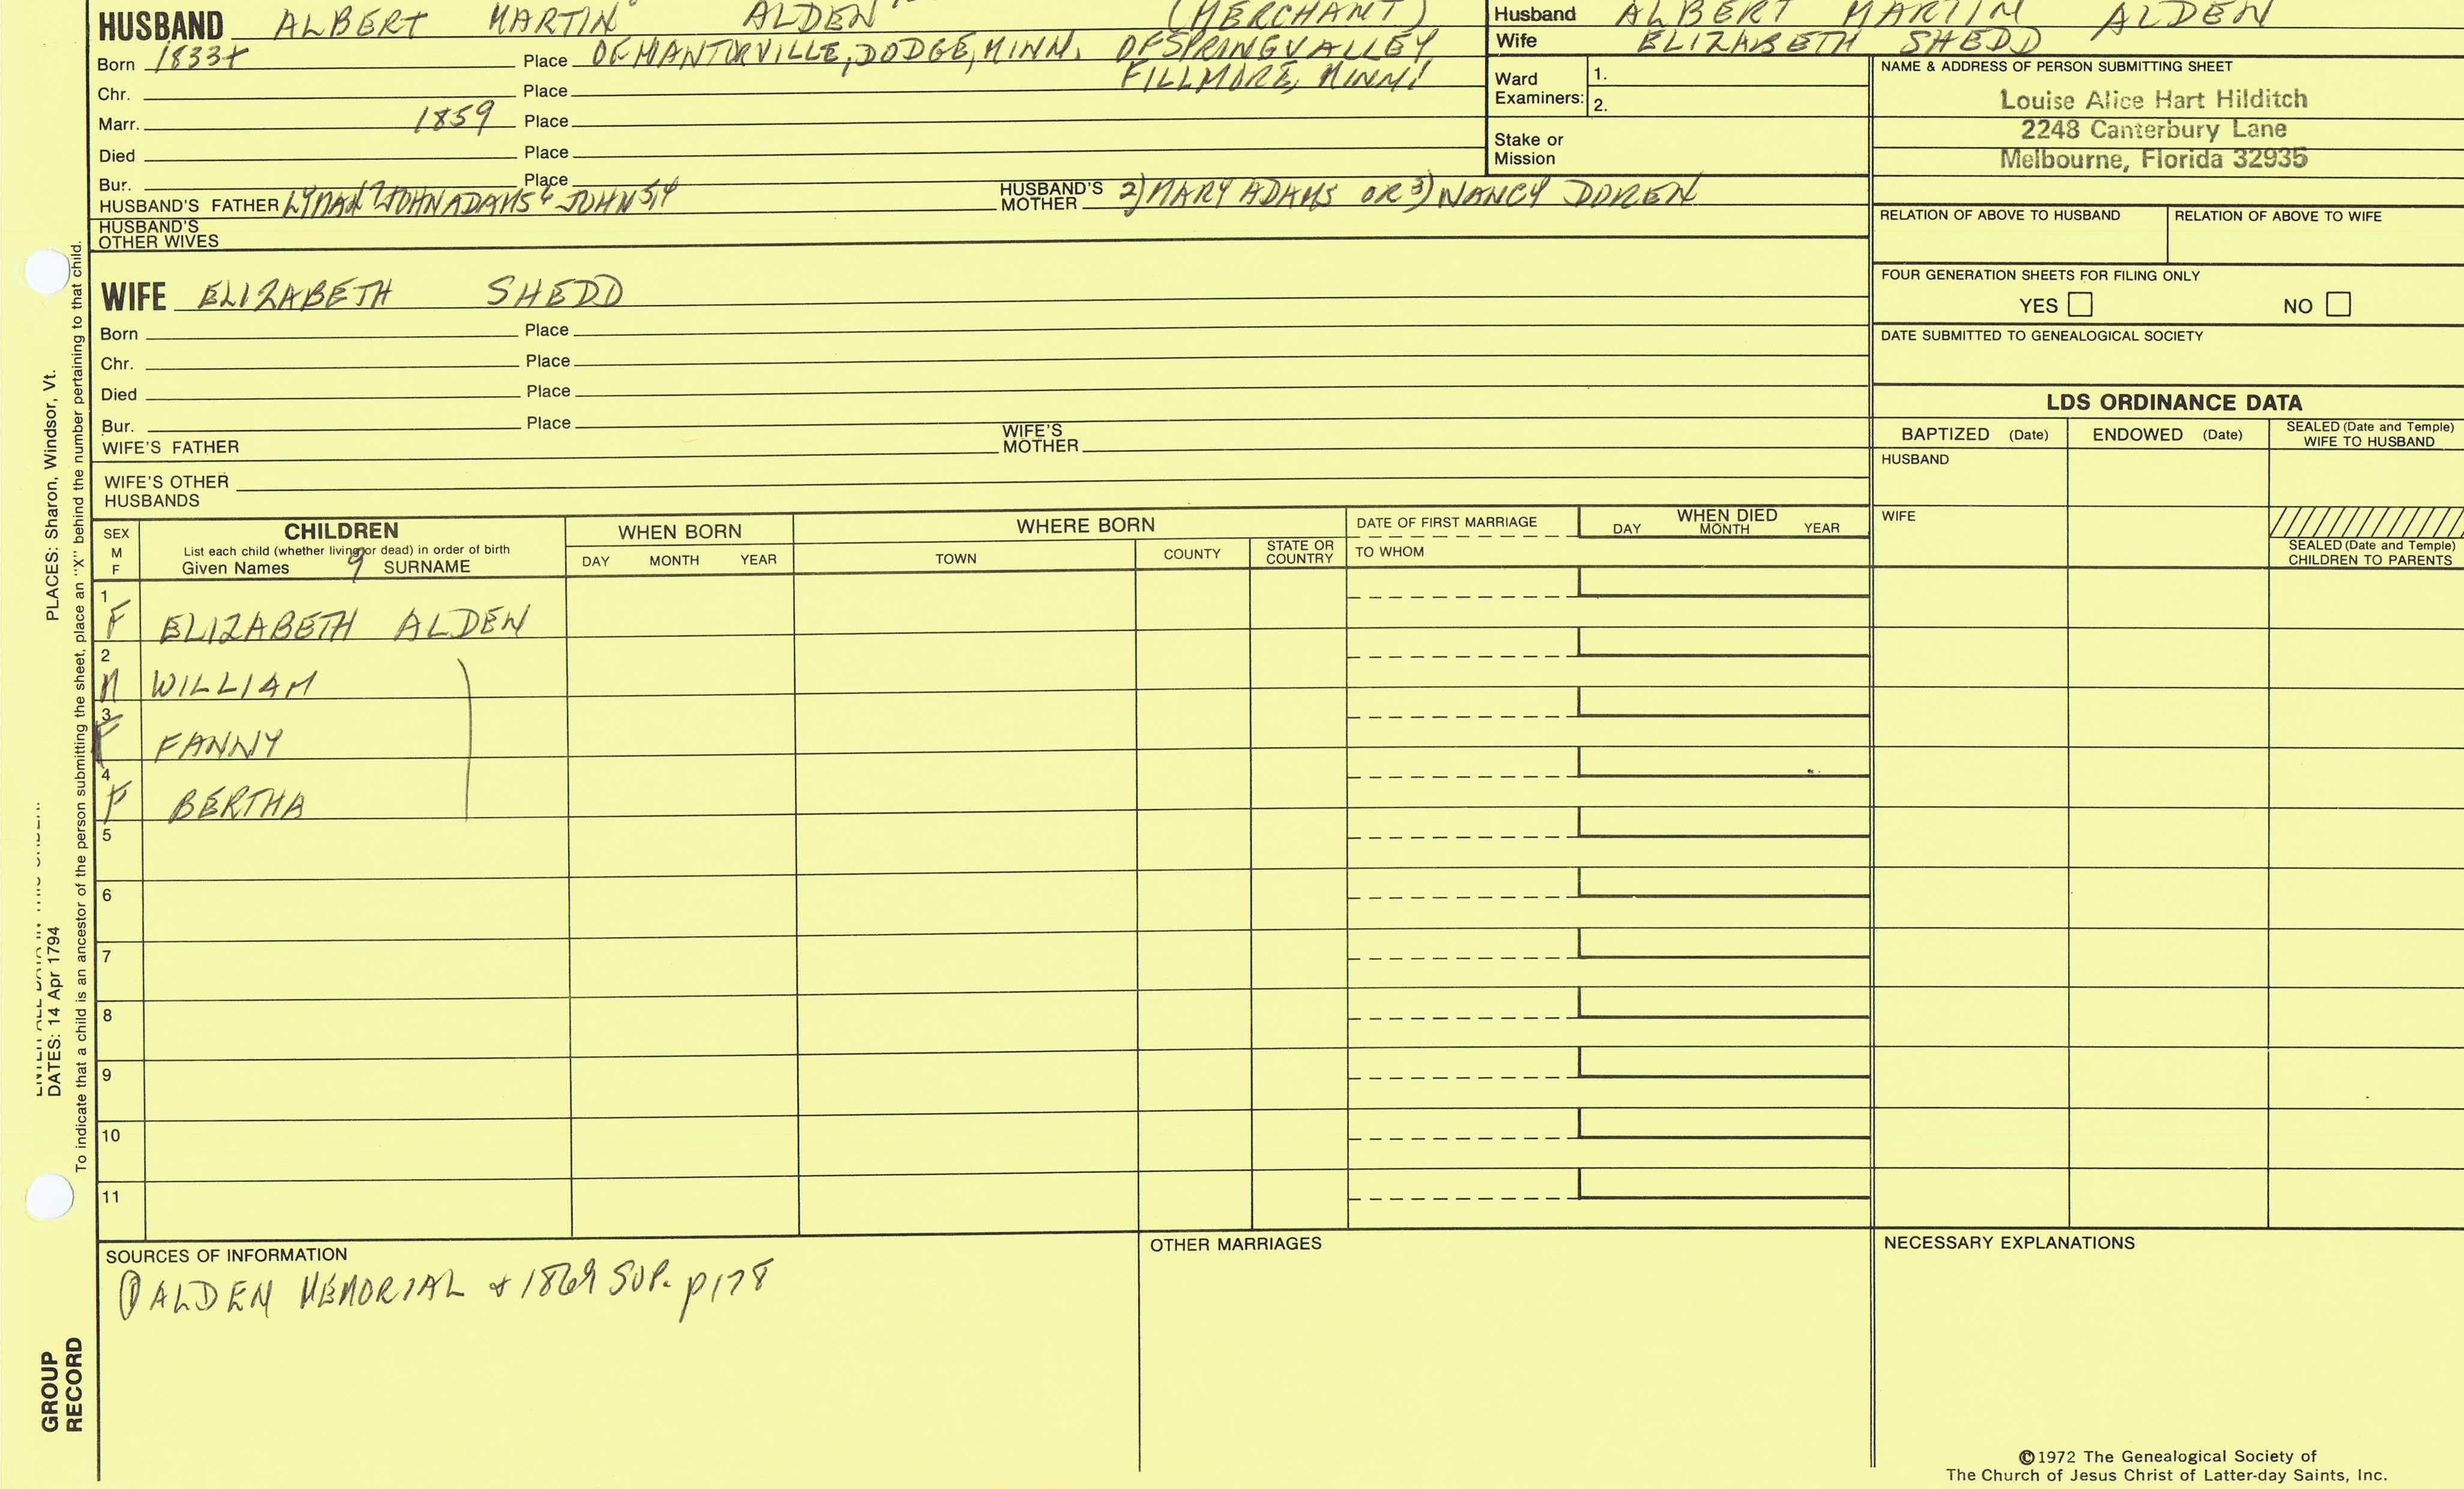 HUSBAND ALBERT MARTIN ALDEN (MERCHANT)
Born 1833+ Place OF MANTORVILLE, DODGE, MINN. OF SPRING VALLEY
FILLMORE, MINN!
Chr. Place
Marr. 1859 Place
Died Place
Bur. Place
HUSBAND'S FATHER LYMAN 7 JOHN ADAMS 6 JOHN 5,4 HUSBAND'S MOTHER 2) MARY ADAMS OR 3) NANCY DOREN
HUSBAND'S OTHER WIVES
Husband ALBERT MARTIN ALDEN
Wife ELIZABETH SHEDD
Ward Examiners: 1.
2.
Stake or Mission
NAME & ADDRESS OF PERSON SUBMITTING SHEET
Louise Alice Hart Hilditch
2248 Canterbury Lane
Melbourne, Florida 32935
RELATION OF ABOVE TO HUSBAND RELATION OF ABOVE TO WIFE
FOUR GENERATION SHEETS FOR FILING ONLY
YES NO
DATE SUBMITTED TO GENEALOGICAL SOCIETY
WIFE ELIZABETH SHEDD
Born Place
Chr. Place
Died Place
Bur. Place
WIFE'S FATHER WIFE'S MOTHER
WIFE'S OTHER HUSBANDS
LDS ORDINANCE DATA
BAPTIZED (Date) ENDOWED (Date) SEALED (Date and Temple) WIFE TO HUSBAND
HUSBAND
WIFE
SEALED (Date and Temple) CHILDREN TO PARENTS
SEX M F
CHILDREN
List each child (whether living or dead) in order of birth
Given Names 9 SURNAME
WHEN BORN
DAY MONTH YEAR
WHERE BORN
TOWN COUNTY STATE OR COUNTRY
DATE OF FIRST MARRIAGE
TO WHOM
WHEN DIED
DAY MONTH YEAR
1 F ELIZABETH ALDEN
2 M WILLIAM
3 F FANNY
4 F BERTHA
5
6
7
8
9
10
11
SOURCES OF INFORMATION
① ALDEN MEMORIAL + 1869 SUP. p178
OTHER MARRIAGES
NECESSARY EXPLANATIONS
©1972 The Genealogical Society of
The Church of Jesus Christ of Latter-day Saints, Inc.
PLACES: Sharon, Windsor, Vt.
DATES: 14 Apr 1794
To indicate that a child is an ancestor of the person submitting the sheet, place an "X" behind the number pertaining to that child.
GROUP
RECORD